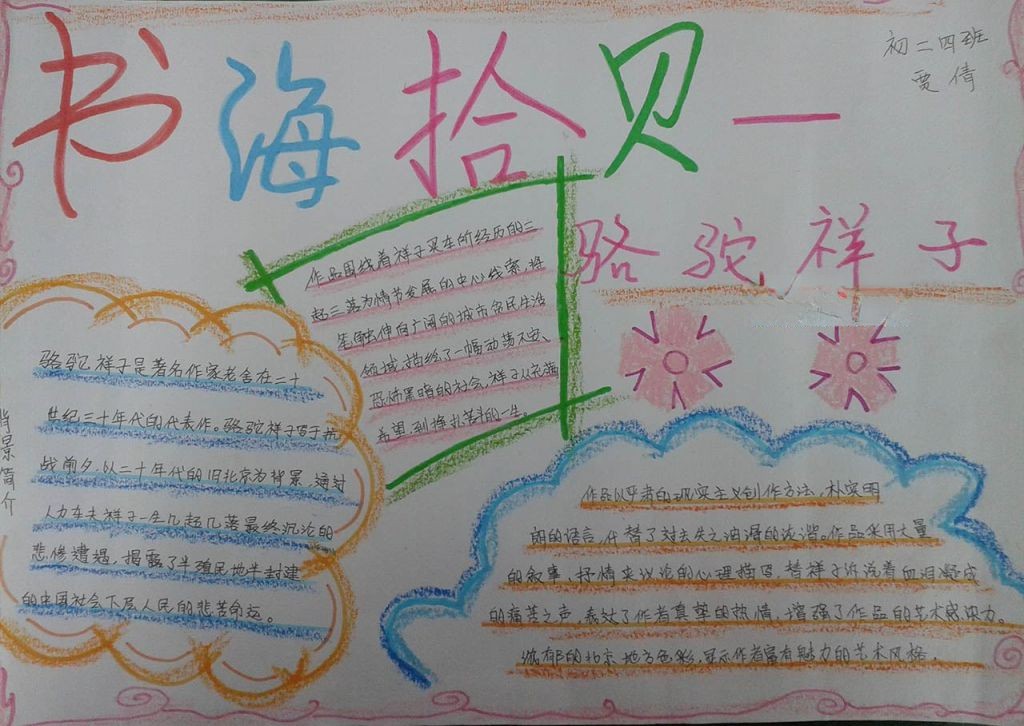 书海拾贝一
初二四班
贾倩
骆驼祥子
作品围绕着祥子买车的经历的三
起三落为情节发展的中心线索,将
笔触伸向广阔的城市贫民生活
领域,描绘了一幅动荡不安、
恐怖黑暗的社会,祥子从充满
希望到挣扎苦斗的一生。
背景简介
骆驼祥子是著名作家老舍在二十
世纪三十年代的代表作。骆驼祥子写于抗
战前夕,以二十年代的旧北京为背景,通过
人力车夫祥子一生几起几落最终沉沦的
悲惨遭遇,揭露了半殖民地半封建
的中国社会下层人民的悲苦命运。
作品以严肃的现实主义创作方法,朴实明
朗的语言,代替了过去失之油滑的诙谐。作品采用大量
的叙事、抒情夹议论的心理描写,替祥子诉说着血泪凝成
的痛苦之声,表达了作者真挚的热情,增强了作品的艺术感染力。
浓郁的北京地方色彩,显示作者富有魅力的艺术风格。